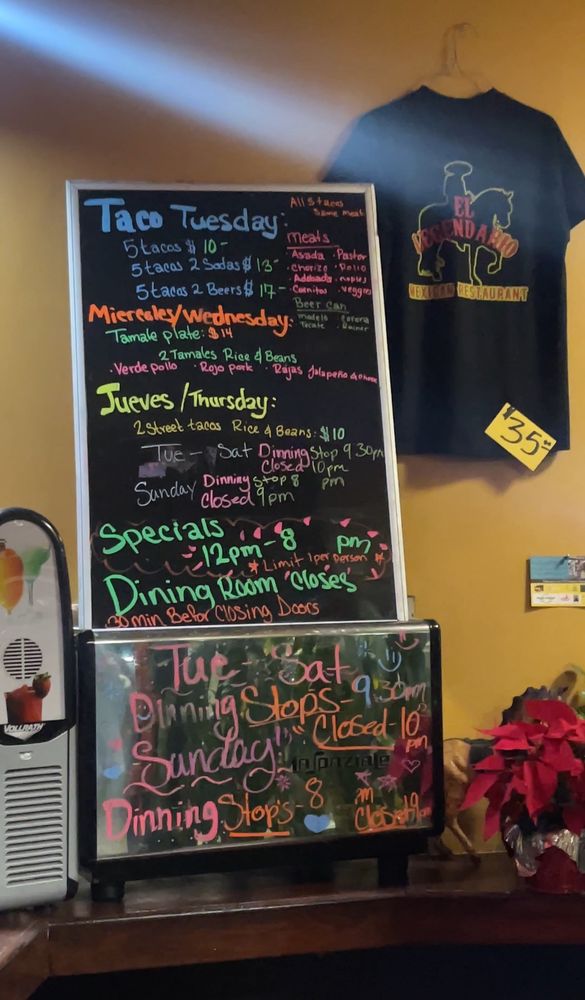 Taco Tuesday:
All 5 tacos
Same meat
5 tacos $ 10-
5 tacos 2 Sodas $ 13-
5 tacos 2 Beers $ 17-
meats
Asada · Pastor
· Chorizo · Pollo
· Adobada
· Carnitas · veggies
Beer Can
modelo · Corona
Tecate · Rainier
Miercoles/Wednesday:
Tamale plate: $14
2 Tamales Rice & Beans
· Verde pollo · Rojo pork · Rajas Jalapeño & cheese
Jueves/Thursday:
2 Street tacos Rice & Beans: $10
Tue - Sat Dinning Stop 9:30pm
Closed 10pm
Sunday Dinning Stop 8 pm
Closed 9pm
Specials
12pm - 8 pm
* Limit 1 per person *
Dining Room Closes
30 min Befor Closing Doors
Tue - Sat
Dinning Stop's - 9:30pm
"Closed - 10 pm
Sunday!
la Spaziale
Dinning Stop's - 8
Closed
EL
LEGENDARIO
MEXICAN RESTAURANT
$35.00
VOLLRATH